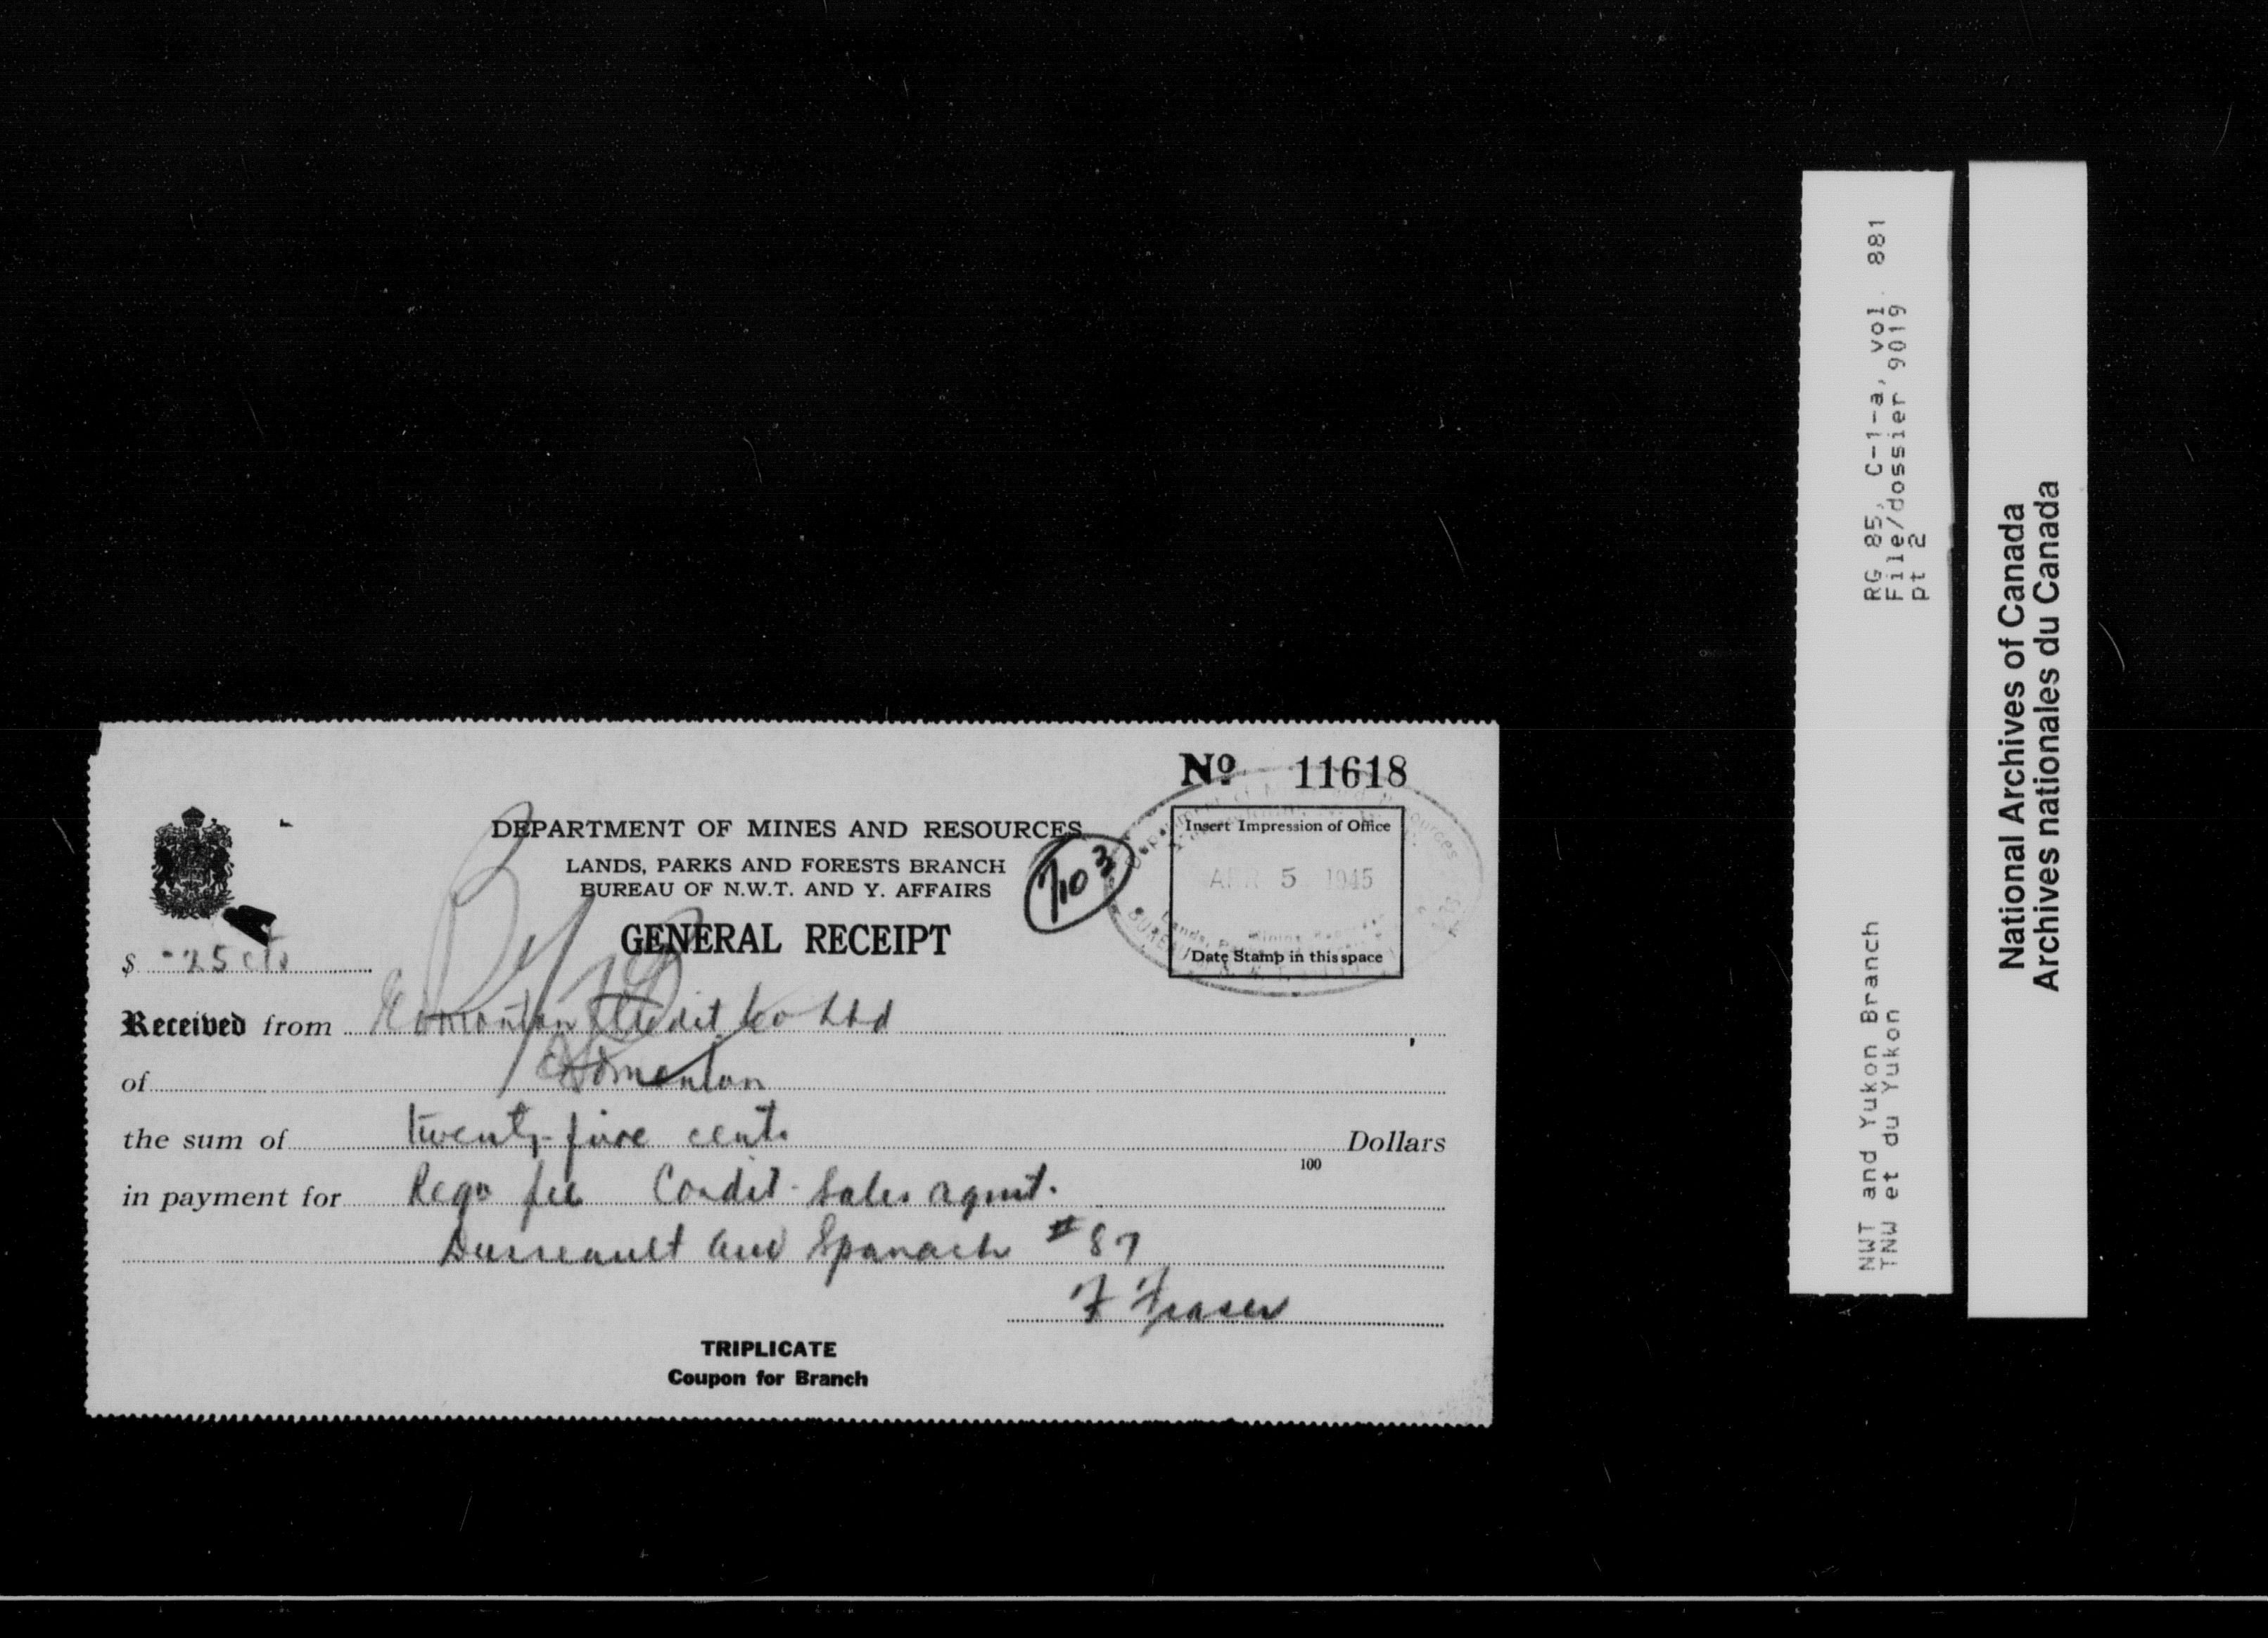 Nº 11618
DEPARTMENT OF MINES AND RESOURCES
LANDS, PARKS AND FORESTS BRANCH
BUREAU OF N.W.T. AND Y. AFFAIRS
GENERAL RECEIPT
Insert Impression of Office
APR 5 1945
Date Stamp in this space
$ 25 cts
Received from Edmonton Credit Co Ltd
of Edmonton
the sum of twenty-five cents 100 Dollars
in payment for Regn fee Condit. Sales agmt.
and Spanach #87
F Fraser
TRIPLICATE
Coupon for Branch
RG 85, C-1-a, vol. 881
File/dossier 9019
pt 2
NWT and Yukon Branch
TNW et du Yukon
National Archives of Canada
Archives nationales du Canada